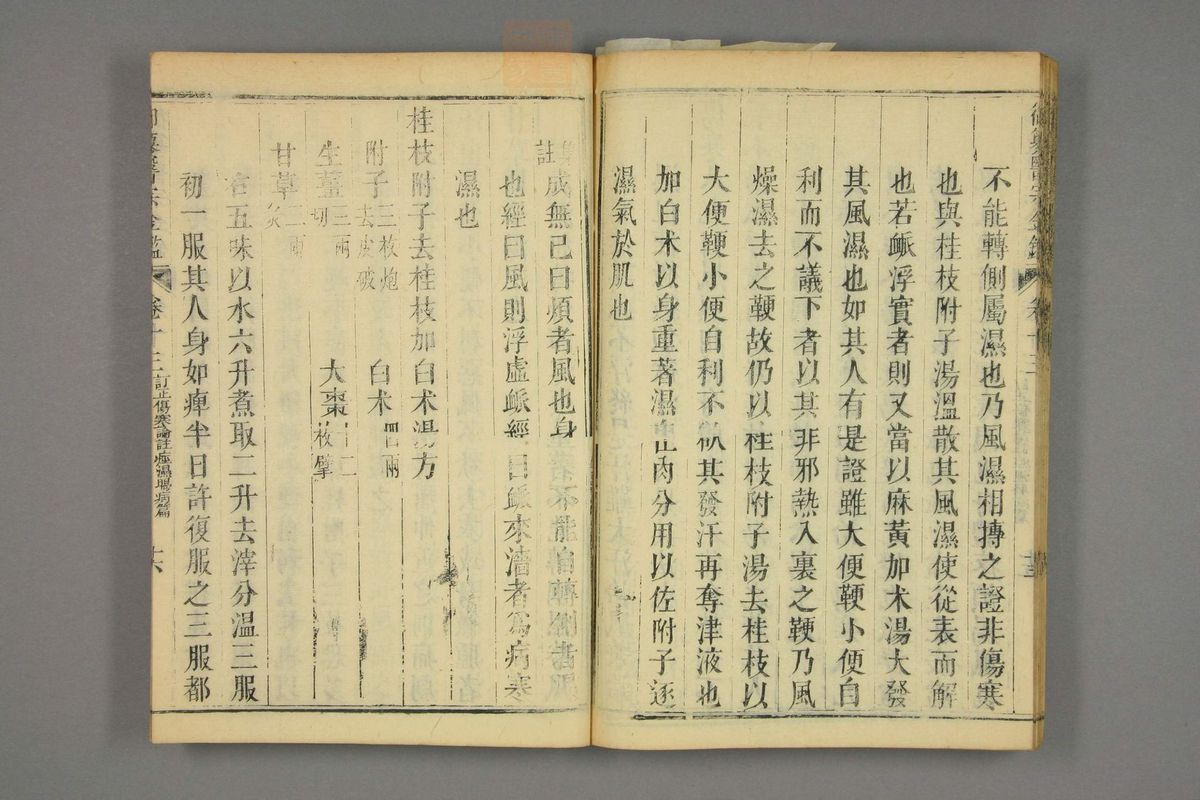 不能轉側屬濕也乃風濕相摶之證非傷寒
也與桂枝附子湯溫散其風濕使從表而解
也若脈浮實者則又當以麻黃加朮湯大發
其風濕也如其人有是證雖大便鞕小便自
利而不議下者以其非邪熱入裏之鞕乃風
燥濕去之鞕故仍以桂枝附子湯去桂枝以
大便鞕小便自利不欲其發汗再奪津液也
加白朮以身重著濕在肉分用以佐附子逐
濕氣於肌也
註成無己曰煩者風也身不能自轉側者
也經曰風則浮虛脈經曰脈來濇者爲病寒
濕也
桂枝附子去桂枝加白朮湯方
附子三枚炮去皮破 白朮四兩
生薑三兩切 大棗十二枚擘
甘草二兩炙
右五味以水六升煮取二升去滓分溫三服
初一服其人身如痺半日許復服之三服都
卷十三 訂正傷寒論註痙濕暍病篇